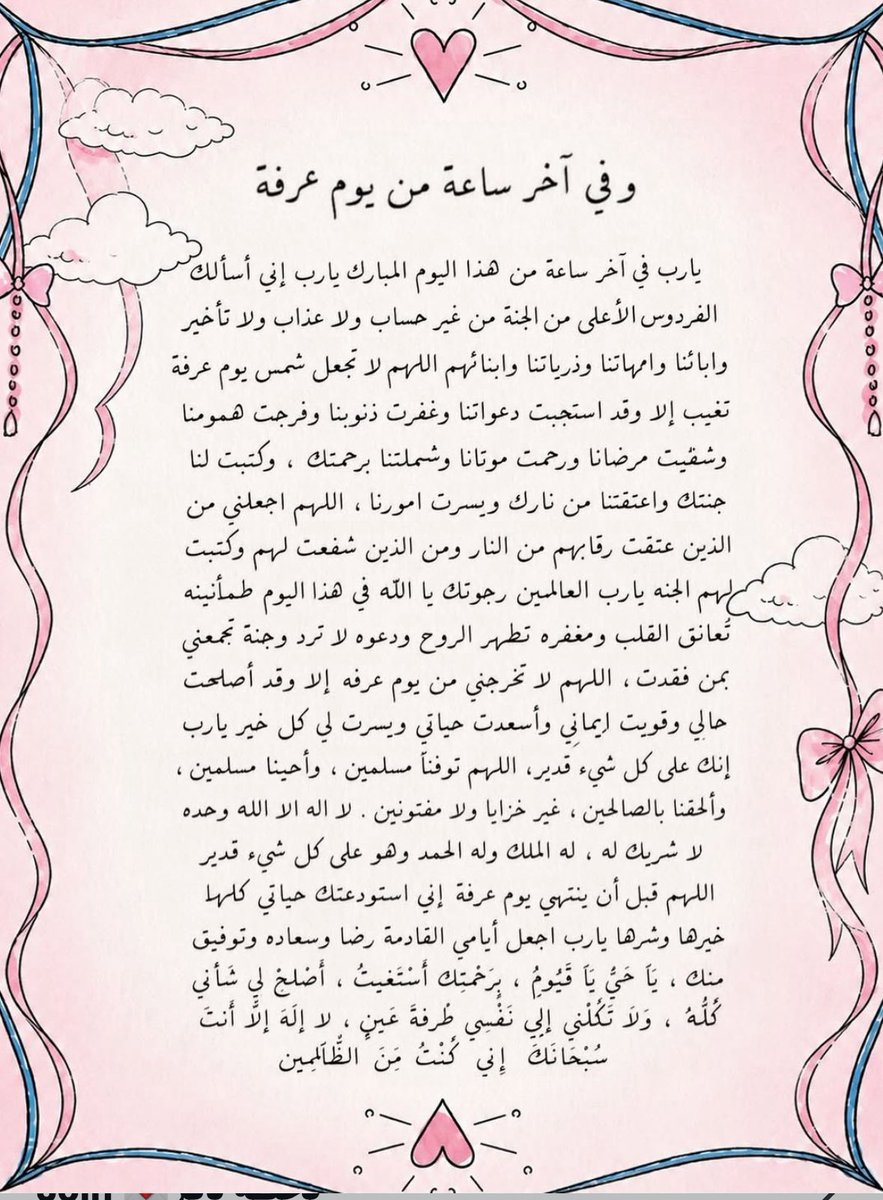 وفي آخر ساعة من يوم عرفة
يارب في آخر ساعة من هذا اليوم المبارك يارب إني أسألك
الفردوس الأعلى من الجنة من غير حساب ولا عذاب ولا تأخير
وابائنا وامهاتنا وذرياتنا وابنائهم اللهم لا تجعل شمس يوم عرفة
تغيب إلا وقد استجبت دعواتنا وغفرت ذنوبنا وفرجت همومنا
وشفيت مرضانا ورحمت موتانا وشملتنا برحمتك ، وكتبت لنا
جنتك واعتقتنا من نارك ويسرت امورنا ، اللهم اجعلني من
الذين عتقت رقابهم من النار ومن الذين شفعت لهم وكتبت
لهم الجنه يارب العالمين رجوتك يا الله في هذا اليوم طمأنينه
تُعانق القلب ومغفره تطهر الروح ودعوه لا ترد وجنة تجمعني
بمن فقدت ، اللهم لا تخرجني من يوم عرفه إلا وقد أصلحت
حالي وقويت إيماني وأسعدت حياتي ويسرت لي كل خير يارب
إنك على كل شيء قدير، اللهم توفنا مسلمين ، وأحينا مسلمين ،
وألحقنا بالصالحين ، غير خزايا ولا مفتونين . لا اله الا الله وحده
لا شريك له ، له الملك وله الحمد وهو على كل شيء قدير
اللهم قبل أن ينتهي يوم عرفة إني استودعتك حياتي كلها
خيرها وشرها يارب اجعل أيامي القادمة رضا وسعاده وتوفيق
منك ، يَا حَيُّ يَا قَيُّومُ ، بِرَحْمَتِك أَسْتَغيثُ ، أَصْلحْ لِي شَأني
كُلَّهُ ، وَلَا تَكِلْني إلي نَفْسِي طْرفةَ عَينٍ ، لا إلَهَ إلَّا أَنتَ
سُبْحَانَكَ إِني كُنْتُ مِنَ الظَّالَمِين